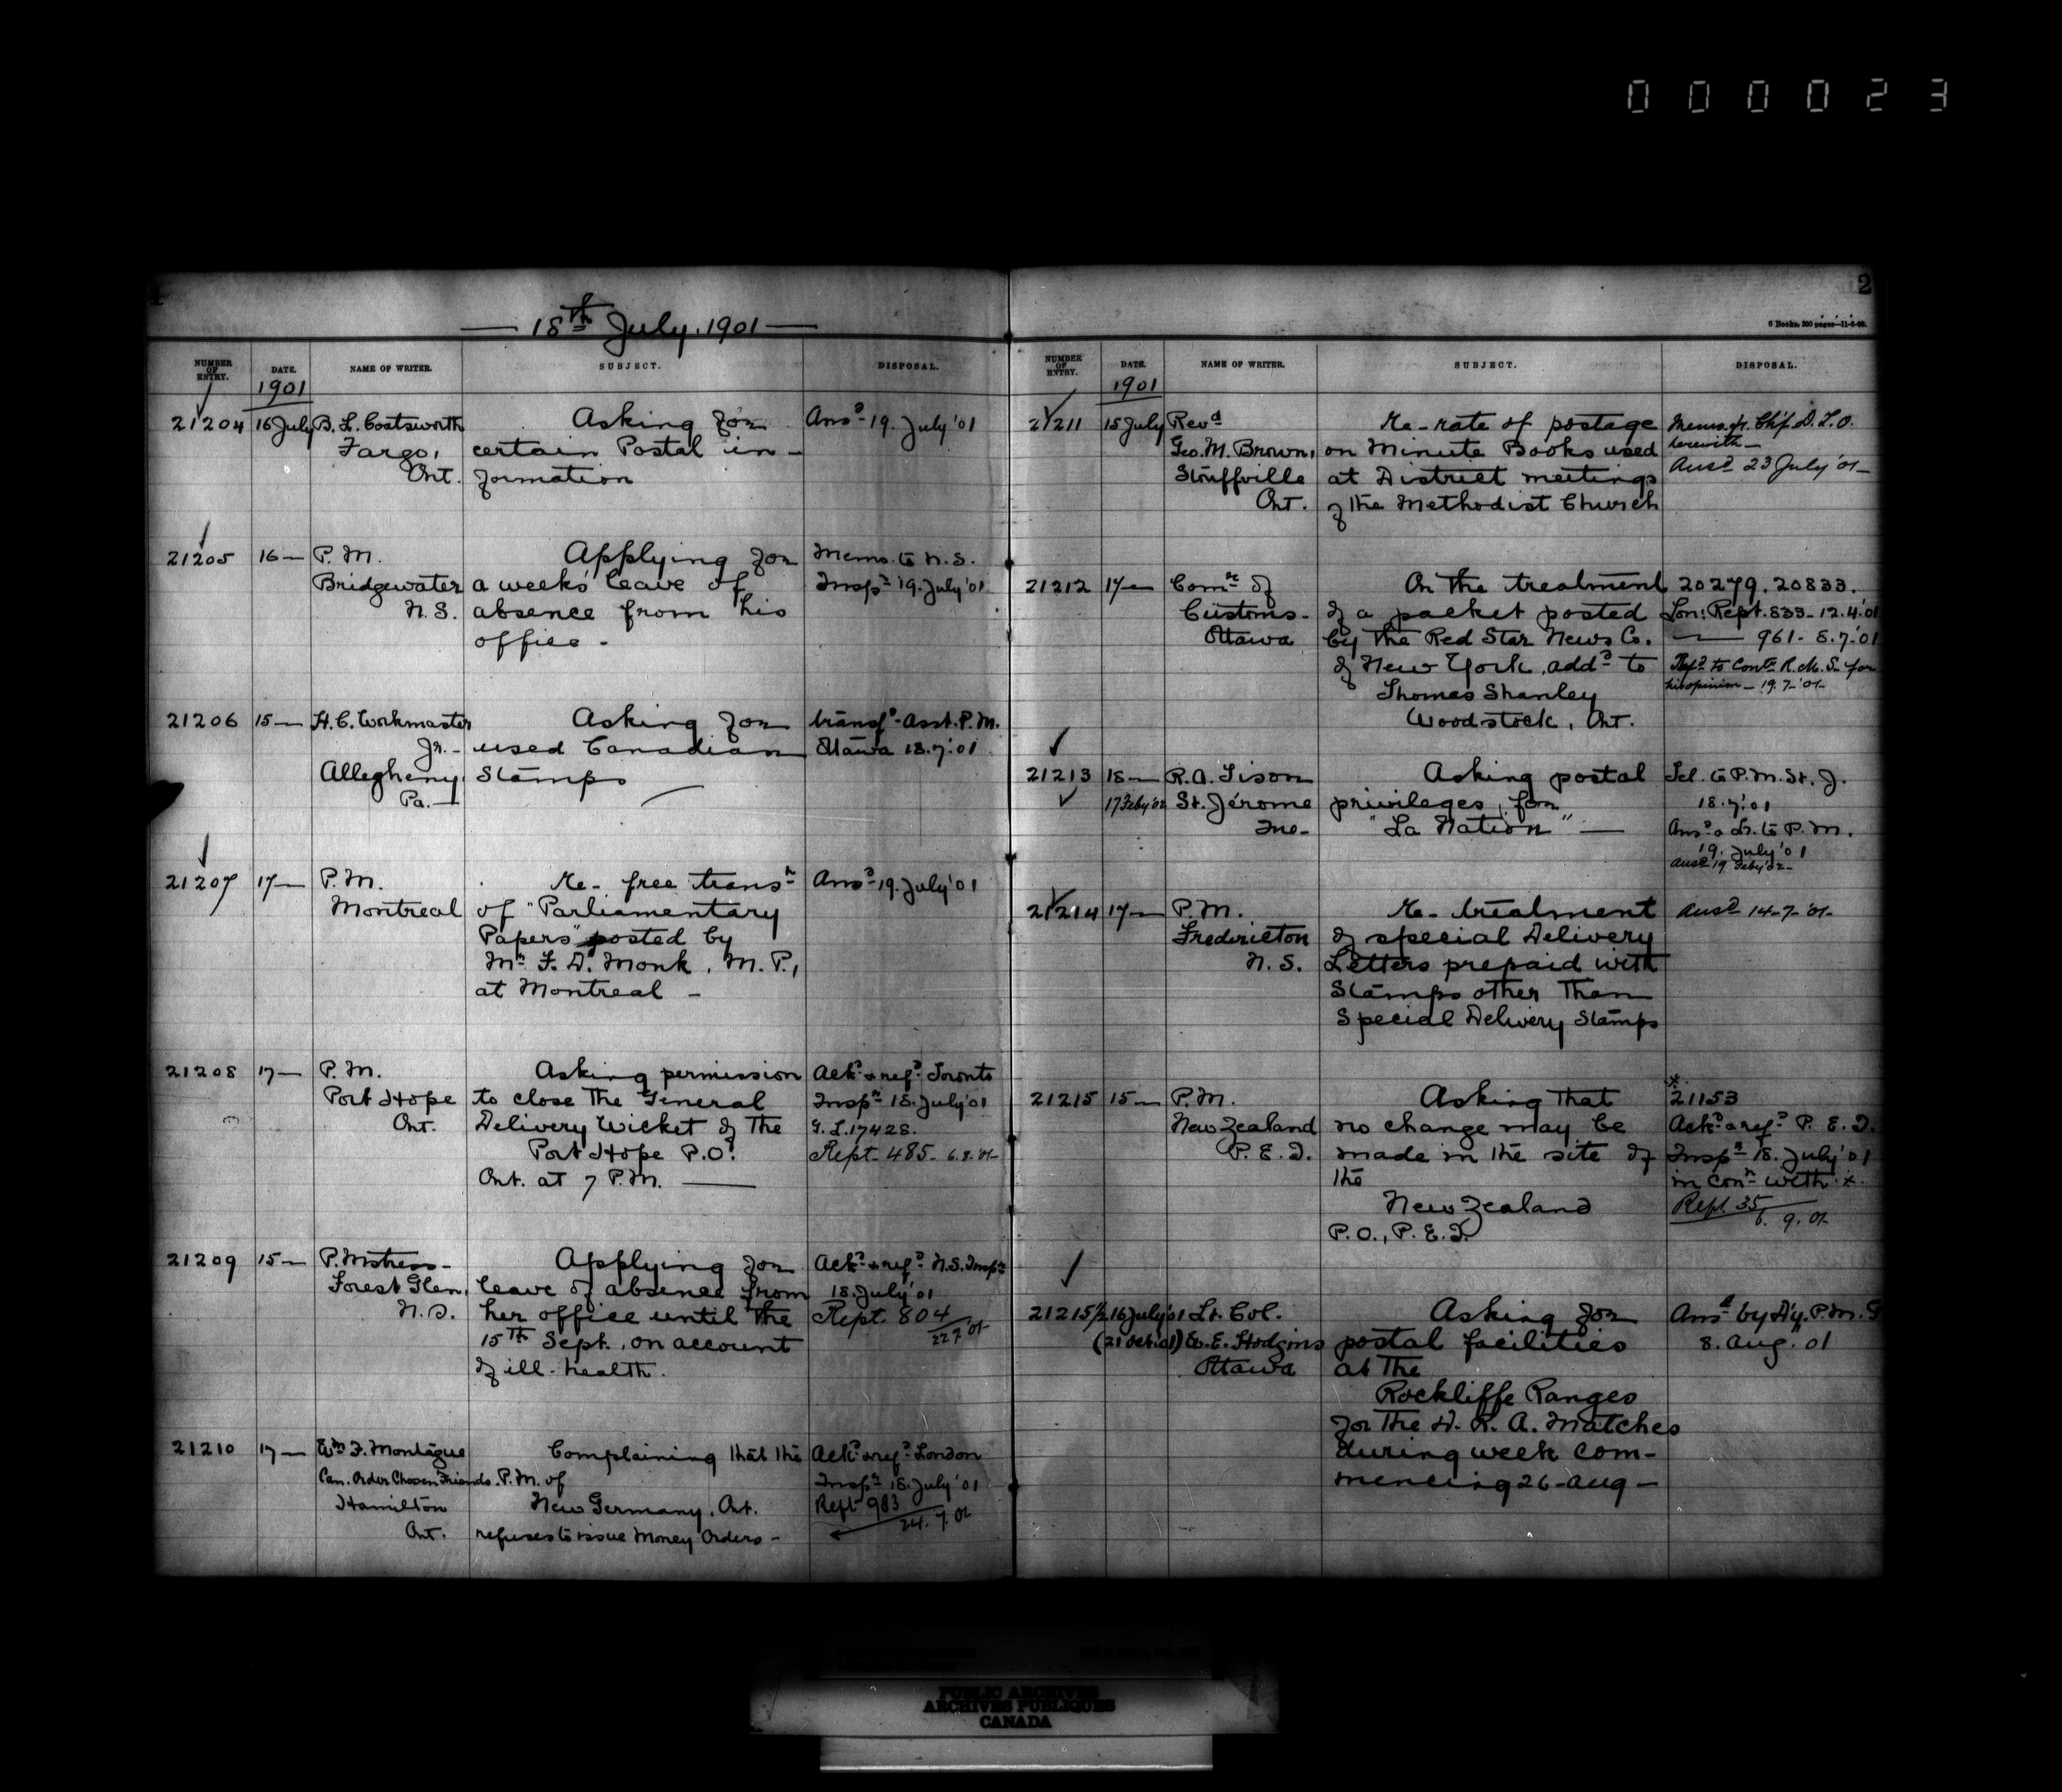 000023
1
18th July, 1901
NUMBER OF ENTRY.
DATE.
NAME OF WRITER.
SUBJECT.
DISPOSAL.
1901
21204 16 July B. L. Coatsworth Asking for Ansd 19. July '01
Fargo, certain Postal in-
Ont. formation
21205 16 — P. M. Applying for Memo. to N. S.
Bridgewater a week's leave of Inspr 19. July '01
N. S. absence from his
office -
21206 15 — H. C. Workmaster Asking for transfd Asst. P. M.
Jr. - used Canadian Ottawa 18.7.'01
Allegheny, Stamps
Pa. —
21207 17 — P. M. Re- free transn Ansd 19. July '01
Montreal of "Parliamentary
Papers" posted by
Mr F. D. Monk, M. P.,
at Montreal -
21208 17 — P. M. Asking permission Ackd & refd Toronto
Port Hope to close the General Inspr 18. July '01
Ont. Delivery Wicket of the G. L. 17428.
Port Hope P.O. Rept. 485- 6.8.'01-
Ont. at 7 P.M. —
21209 15 — P. Mstress - Applying for Ackd & refd N.S. Inspr
Forest Glen, leave of absence from 18. July '01
N. S. her office until the Rept. 804
15th Sept., on account 22 7 '01
of ill-health.
21210 17 — Wm F. Montague Complaining that the Ackd & refd London
Can. Order Chosen Friends. P.M. of Inspr 18. July '01
Hamilton New Germany, Ont. Rept 983
Ont. refuses to issue Money Orders - 24. 7. 01
2
6 Books, 300 pages—11-8-99.
NUMBER OF ENTRY.
DATE.
NAME OF WRITER.
SUBJECT.
DISPOSAL.
1901
21211 15 July Revd Re- rate of postage Memo. fr. Chf. D. L. O.
Geo. M. Brown, on Minute Books used herewith —
Stouffville at District meetings Ansd 23 July '01 -
Ont. of the Methodist Church
21212 17 — Comr of On the treatment 20279. 20833.
Customs - of a packet posted Lon: Rept. 833 - 12.4.'01
Ottawa by the Red Star News Co. — 961 - 8.7.'01
of New York, addd to Refd to Contr R. M. S. for
Thomas Shanley his opinion - 19.7.'01-
Woodstock, Ont.
21213 18 — R. A. Tison Asking postal Tel. to P. M. St. J.
17 Feby '02 St. Jérome privileges for 18.7.'01
Que- "La Nation" — Ansd & Lr. to P. M.
19. July '01
Ansd 19 Feby '02-
21214 17 — P. M. Re- treatment Ansd 14-7-'01-
Fredericton of special Delivery
N. S. Letters prepaid with
Stamps other than
Special Delivery Stamps
21215 15 — P. M. Asking that *21153
New Zealand no change may be Ackd & refd P. E. I.
P. E. I. made in the site of Inspr 18. July '01
the in conn with *.
New Zealand Rept. 35
P.O., P. E. I. 6. 9. 01-
21215½ 16 July '01 Lt. Col. Asking for Ansd by Dy. P.M.G
(21 Oct. 01) W. E. Hodgins postal facilities 8. Aug. 01
Ottawa at the
Rockliffe Ranges
for the D. R. A. Matches
during week com-
mencing 26-Aug -
PUBLIC ARCHIVES
ARCHIVES PUBLIQUES
CANADA